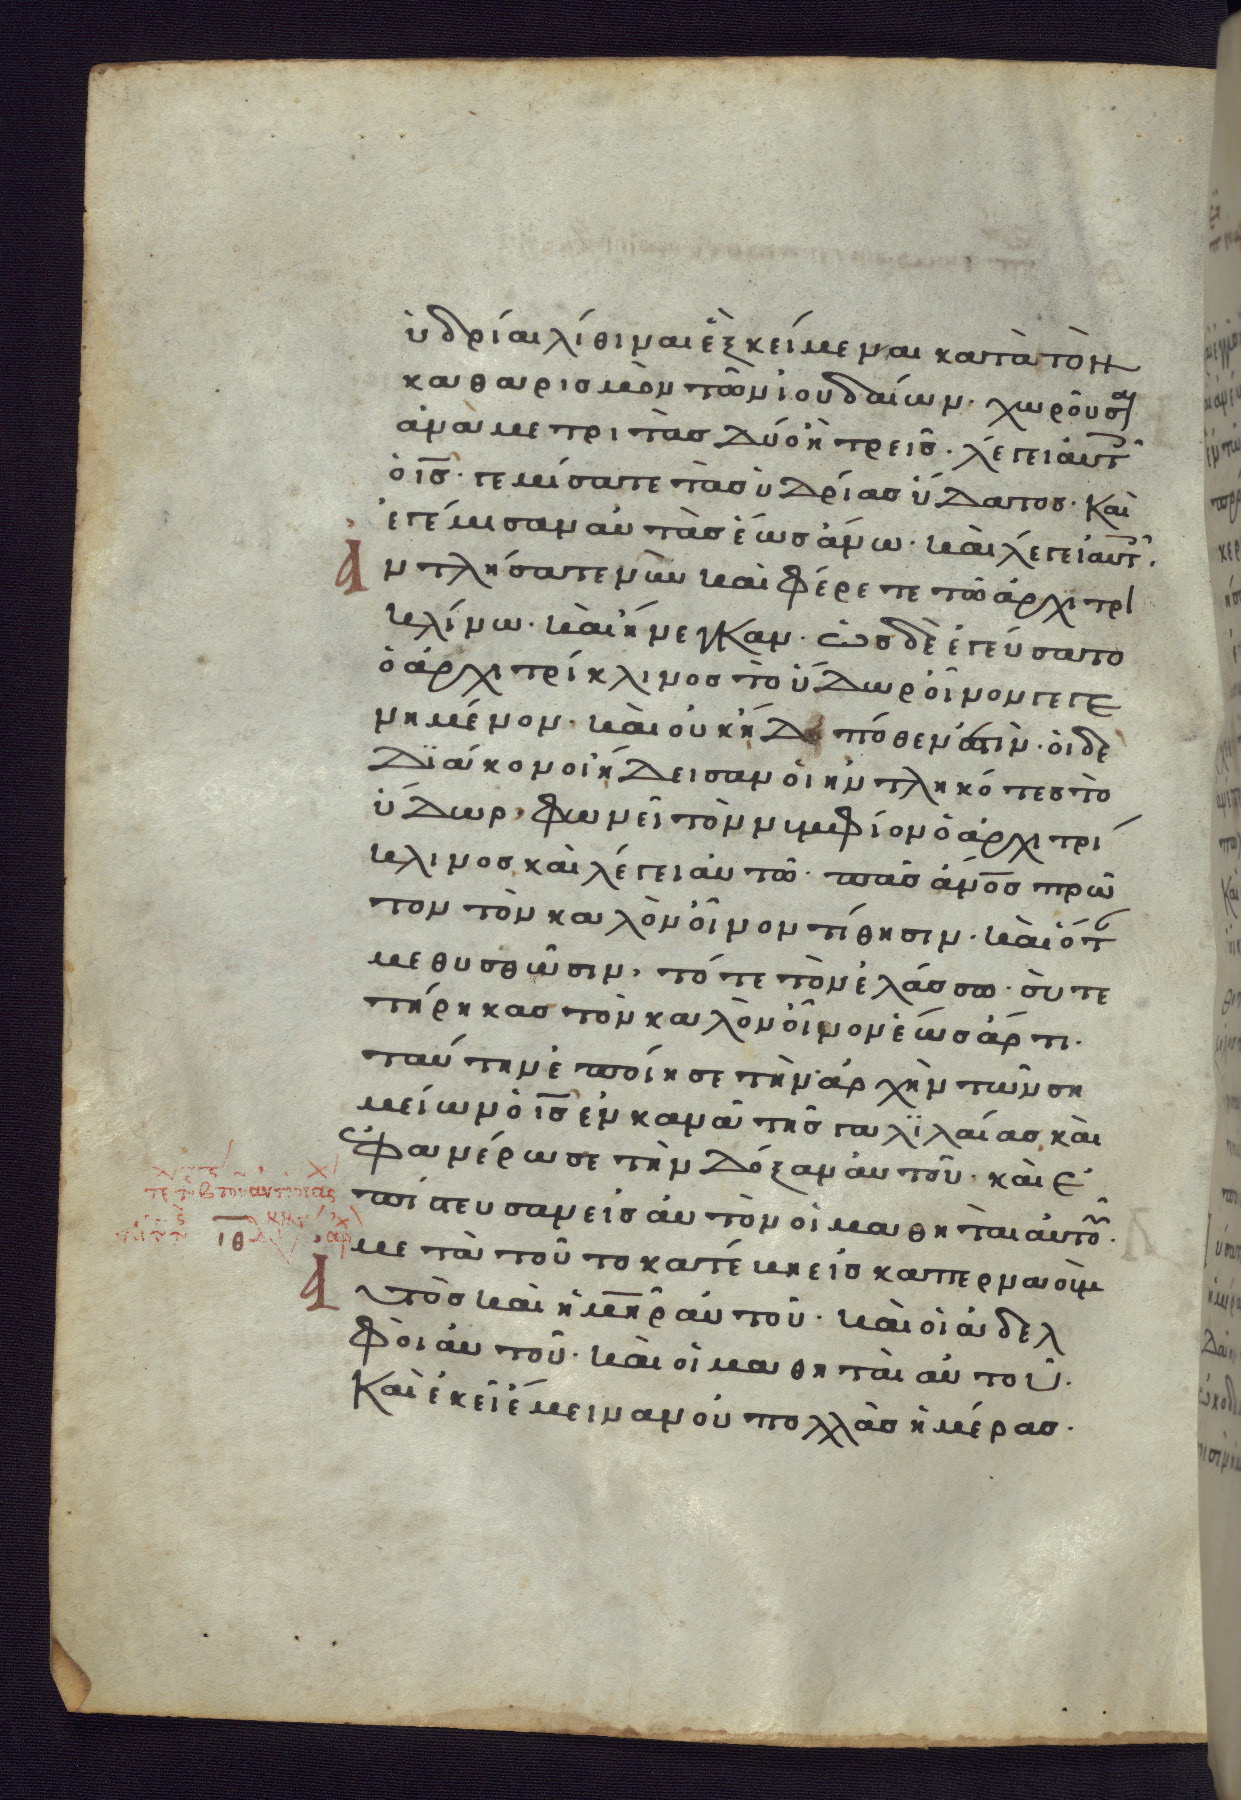 ὑδρίαι λίθιναι ἓξ κείμεναι κατὰ τὸν
καθαρισμὸν τῶν ἰουδαίων· χωροῦσαι
ἀνὰ μετριτὰς δύο ἢ τρεῖς· λέγει αὐτ
ὁ ις· γεμίσατε τὰς ὑδρίας ὕδατος· καὶ
ἐγέμισαν αὐτὰς ἕως ἄνω· καὶ λέγει αὐτ·
ἀντλήσατε νῦν καὶ φέρετε τῶ ἀρχιτρι
κλίνω· καὶ ἤνεγκαν· ὡς δὲ ἐγεύσατο
ὁ ἀρχιτρίκλινος τὸ ὕδωρ οἶνον γεγε
νημένον· καὶ οὐκ ἤδει πόθεν ἐστὶν· οἱ δε
διάκονοι ἤδεισαν οἱ ἠντληκότες τὸ
ὕδωρ, φωνεῖ τὸν νυμφίον ὁ ἀρχιτρί
κλινος καὶ λέγει αὐτῶ· πᾶς ἄνος πρῶ
τον τὸν καλὸν οἶνον τίθησιν· καὶ ὅτ
μεθυσθῶσιν, τότε τὸν ἐλάσσω· σὺ τε
τήρηκας τὸν καλὸν οἶνον ἕως ἄρτι·
ταύτην ἐποίησε τὴν ἀρχὴν τῶν ση
μείων ὁ ις ἐν κανᾶ τῆς γαλϊλαίας καὶ
ἐφανέρωσε τὴν δόξαν αὐτοῦ· καὶ ἐ
πίστευσαν εἰς αὐτὸν οἱ μαθηταὶ αὐτοῦ·
μετὰ τοῦτο κατέβη εἰς καπερναοὺμ
αὐτὸς καὶ ἡ μηρ αὐτοῦ· καὶ οἱ ἀδελ
φοὶ αὐτοῦ· καὶ οἱ μαθηταὶ αὐτοῦ·
καὶ ἐκεῖ ἔμειναν οὐ πολλὰς ἡμέρας·
ιθ